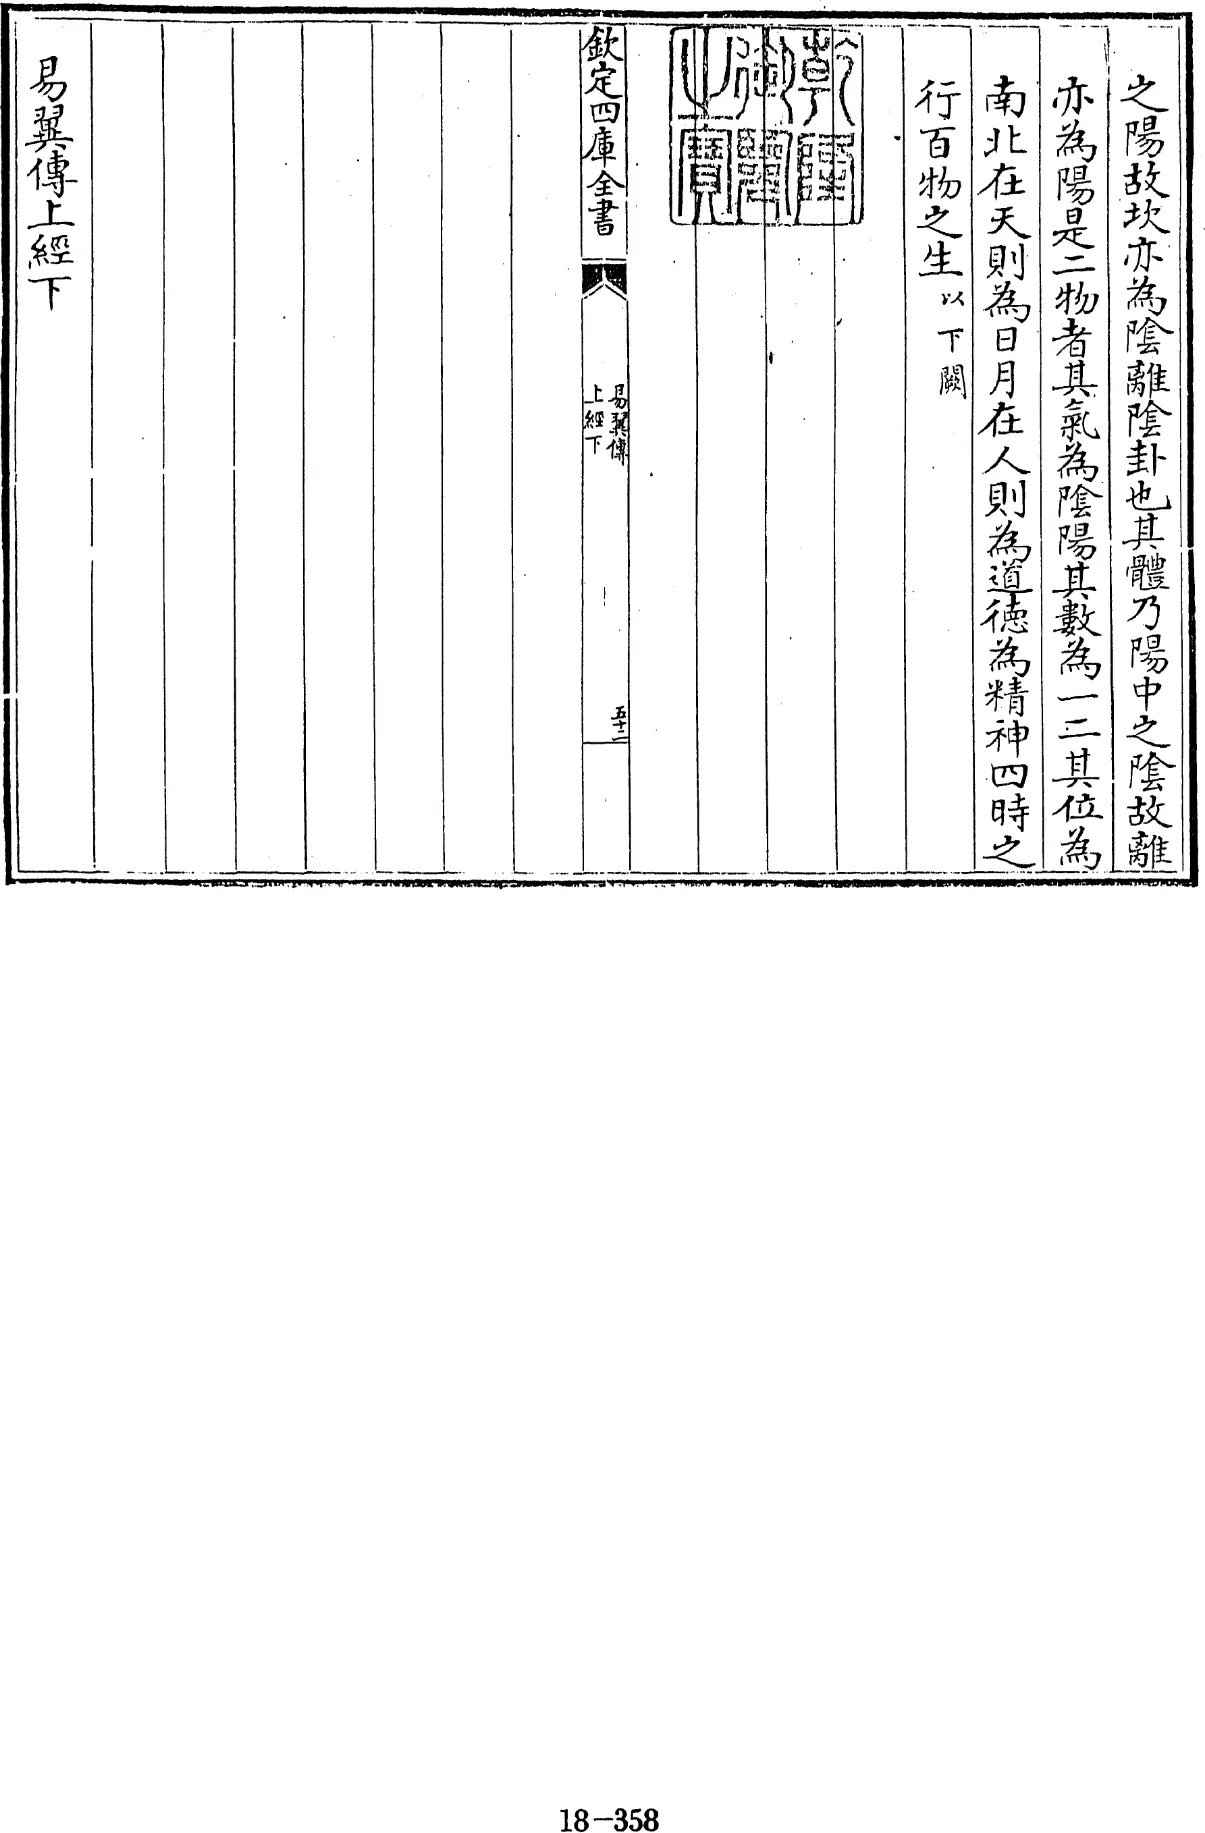 之陽故坎亦為陰離陰卦也其體乃陽中之陰故離
亦為陽是二物者其氣為陰陽其數為一二其位為
南北在天則為日月在人則為道德為精神四時之
行百物之生以下闕
乾隆
御覽
之寶
欽定四庫全書
易翼傳
上經下
五十二
易翼傳上經下
18-358